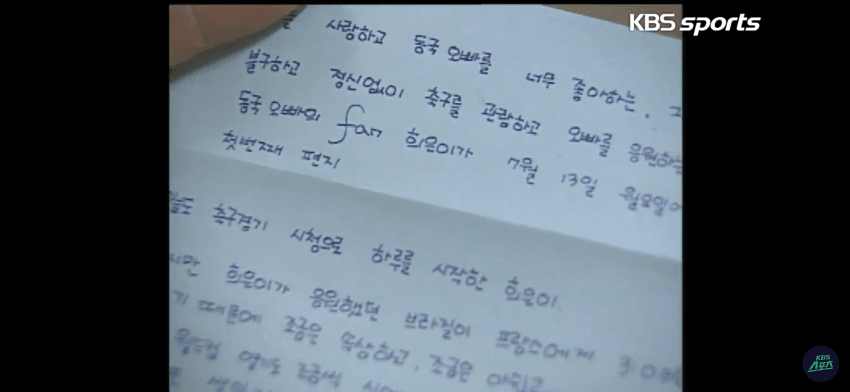 KBS sports
사랑하고 동국 오빠를 너무 좋아하는.
불구하고 정신없이 축구를 관람하고 오빠를 응원하는
동국 오빠의 fan 희은이가 7월 13일 월요일에
첫번째 편지!
축구경기 시청으로 하루를 시작한 희은이.
희은이가 응원했던 브라질이 프랑스에게 3:0
때문에 조금은 속상하고, 조금은
월드컵 열기도 조금씩
KBS 스포츠